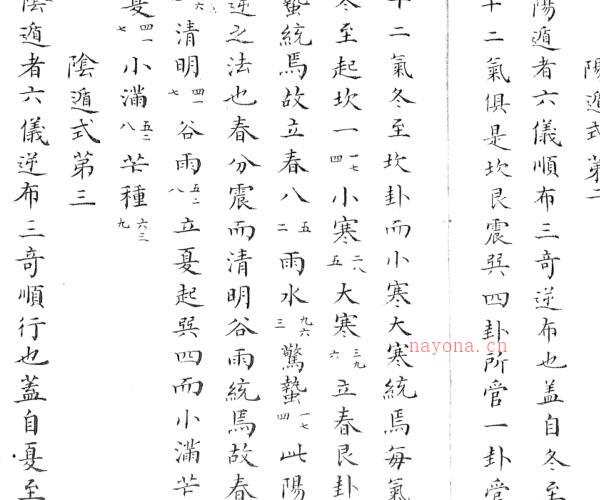 陽遁式第二
陽遁者六儀順布三奇逆布也蓋自冬至
十二氣俱是坎艮震巽四卦所管一卦管
十二氣冬至坎卦而小寒大寒統焉每氣
冬至起坎一一七四小寒二八五大寒三九六立春艮卦
蟄統焉故立春八五二雨水九六三驚蟄一七四此陽
逆之法也春分震而清明谷雨統焉故春
六清明四一七谷雨五二八立夏起巽四而小滿芒
夏四一七小滿五二八芒種六三九
陰遁式第三
陰遁者六儀逆布三奇順行也蓋自夏至
nayona.cn